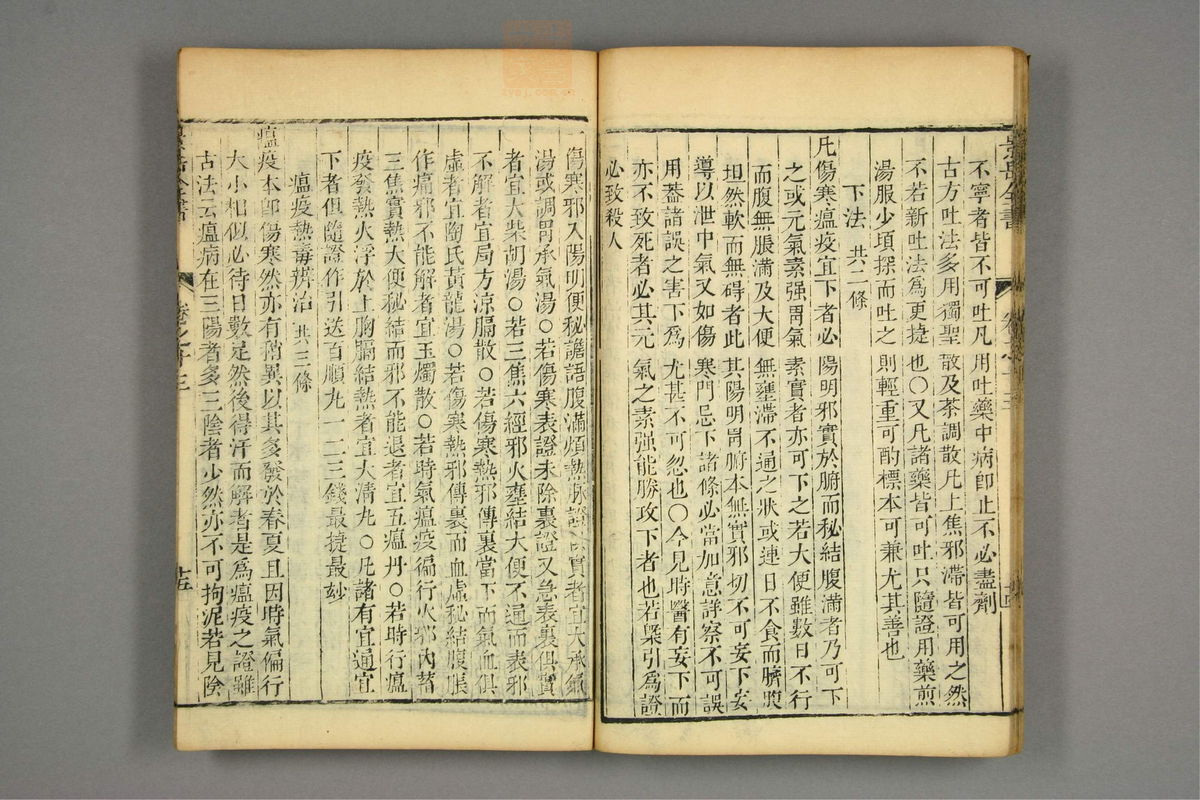 不寧者皆不可吐凡用吐藥中病即止不必盡劑
古方吐法多用獨聖散及茶調散凡上焦邪滯皆可用之然
不若新吐法爲更捷也○又凡諸藥皆可吐只隨證用藥煎
湯服少頃探而吐之則輕重可酌標本可兼尤其善也
下法 共二條
凡傷寒瘟疫宜下者必陽明邪實於腑而秘結腹滿者乃可下
之或元氣素强胃氣素實者亦可下之若大便雖數日不行
而腹無脹滿及大便無壅滯不通之狀或連日不食而臍腹
坦然軟而無碍者此其陽明胃腑本無實邪切不可妄下妄
導以泄中氣又如傷寒門忌下諸條必當加意詳察不可誤
用葢諸誤之害下爲尤甚不可忽也○今見時醫有妄下而
亦不致死者必其元氣之素强能勝攻下者也若槩引爲證
必致殺人
一傷寒邪入陽明便秘譫語腹滿煩熱脉證實者宜大承氣
湯或調胃承氣湯○若傷寒表證未除裏證又急表裏俱實
者宜大柴胡湯○若三焦六經邪火壅結大便不通而表邪
不解者宜局方涼膈散○若傷寒熱邪傳裏當下而氣血俱
虛者宜陶氏黃龍湯○若傷寒熱邪傳裏而血虛秘結腹脹
作痛邪不能解者宜玉燭散○若時氣瘟疫徧行火邪內蓄
三焦實熱大便秘結而邪不能退者宜五瘟丹○若時行瘟
疫發熱火浮於上胸膈結熱者宜大淸丸○凡諸有宜通宜
下者俱隨證作引送百順丸一二三錢最捷最玅
瘟疫熱毒辨治 共三條
瘟疫本卽傷寒然亦有稍異以其多發於春夏且因時氣徧行
大小相似必待日數足然後得汗而解者是爲瘟疫之證雖
古法云瘟病在三陽者多三陰者少然亦不可拘泥若見陰
景岳全書
卷之十三
十五